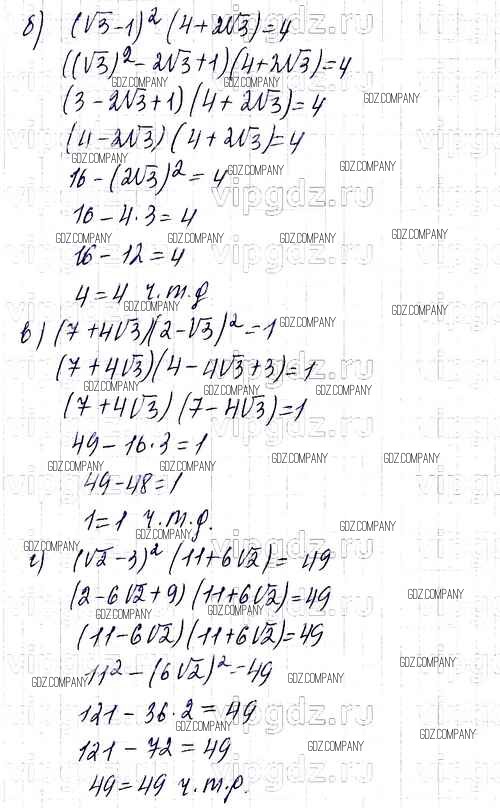 б) (√3-1)² (4+2√3)=4
((√3)²-2√3+1)(4+2√3)=4
(3-2√3+1)(4+2√3)=4
(4-2√3)(4+2√3)=4
16-(2√3)²=4
16-4·3=4
16-12=4
4=4 ч.т.д
в) (7+4√3)(2-√3)²=1
(7+4√3)(4-4√3+3)=1
(7+4√3)(7-4√3)=1
49-16·3=1
49-48=1
1=1 ч.т.д.
г) (√2-3)² (11+6√2)=49
(2-6√2+9)(11+6√2)=49
(11-6√2)(11+6√2)=49
11²-(6√2)²=49
121-36·2=49
121-72=49
49=49 ч.т.д.
vipgdz.ru
GDZ.COMPANY